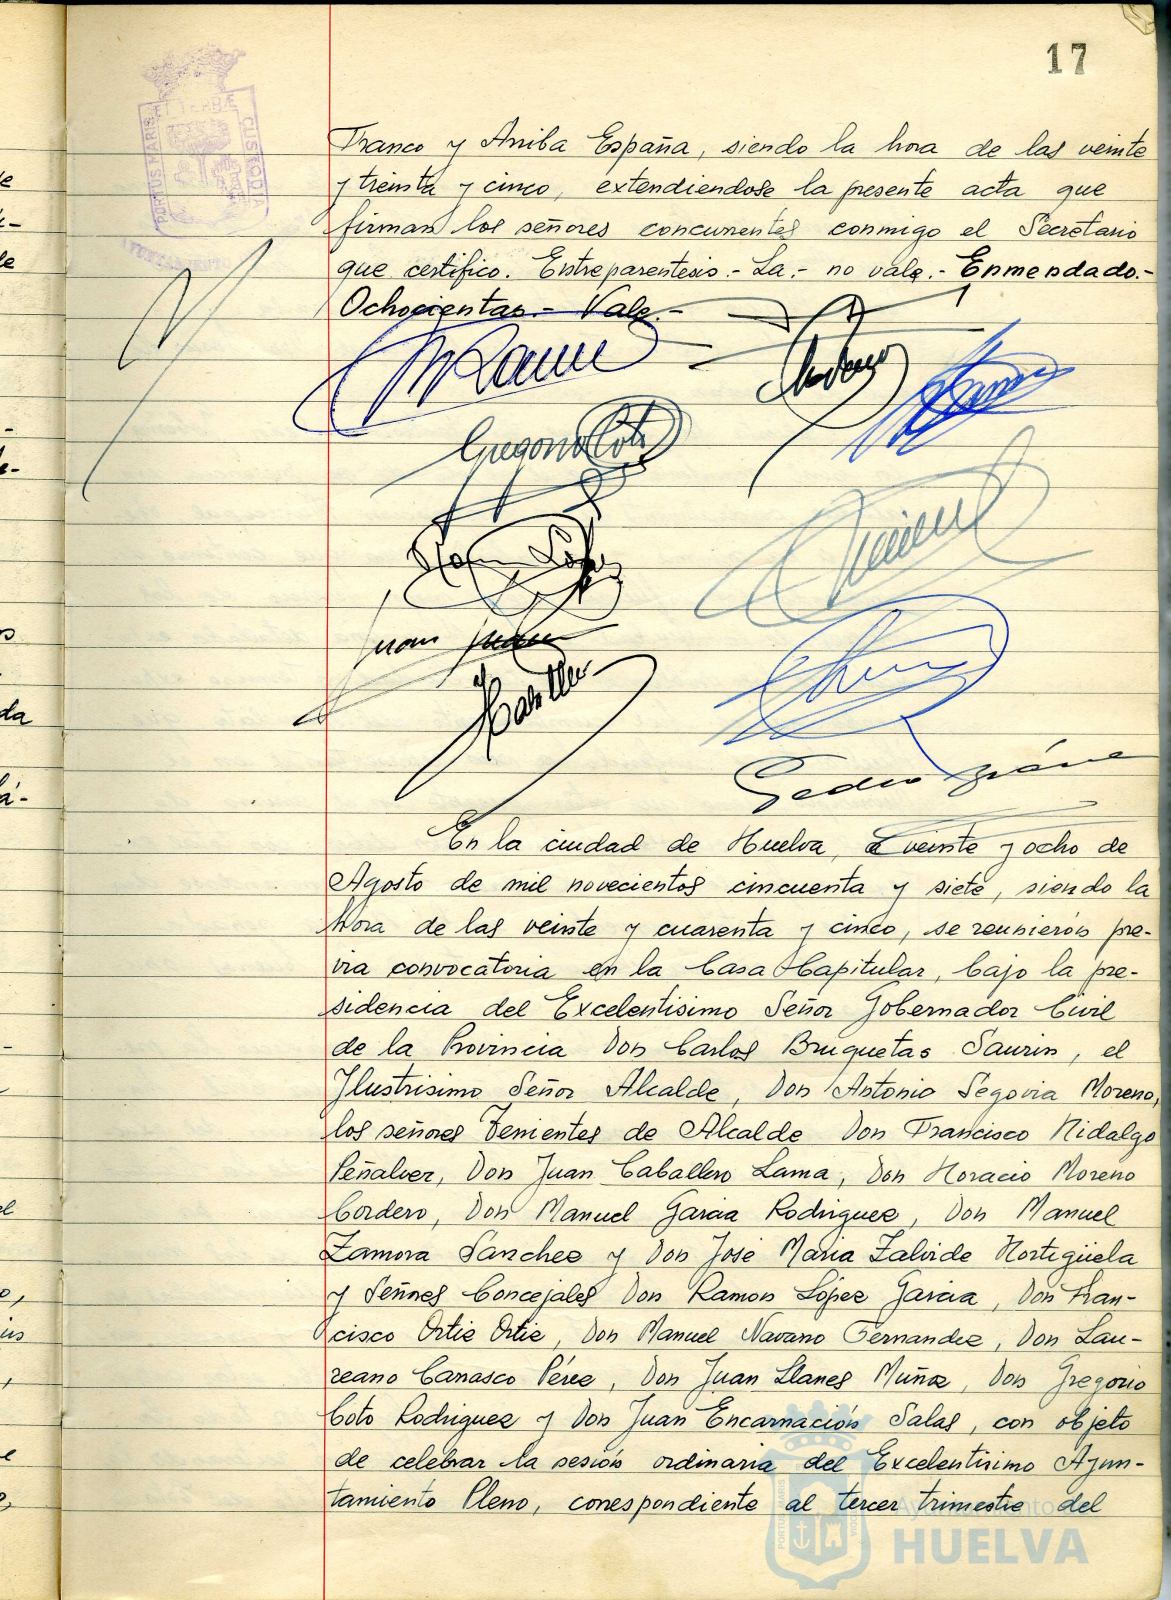 17
PORTUS MARIS ET TERRÆ CUSTODIA
Franco y Arriba España, siendo la hora de las veinte
y treinta y cinco, extendiendose la presente acta que
firman los señores concurrentes conmigo el Secretario
que certifico. Entreparentesis.- La.- no vale.- Enmendado.-
Ochocientas.- Vale.-
Gregorio Coto
En la ciudad de Huelva, a veinte y ocho de
Agosto de mil novecientos cincuenta y siete, siendo la
hora de las veinte y cuarenta y cinco, se reunieron pre-
via convocatoria en la Casa Capitular, bajo la pre-
sidencia del Excelentisimo Señor Gobernador Civil
de la Provincia Don Carlos Bruquetas Saurin, el
Ilustrisimo Señor Alcalde, Don Antonio Segovia Moreno,
los señores Tenientes de Alcalde Don Francisco Hidalgo
Peñalver, Don Juan Caballero Lama, Don Horacio Moreno
Cordero, Don Manuel Garcia Rodriguez, Don Manuel
Zamora Sanchez y Don José Maria Zalvide Hortigüela
y Señores Concejales Don Ramon López Garcia, Don Fran-
cisco Ortiz Ortiz, Don Manuel Navarro Fernandez, Don Lau-
reano Carrasco Pérez, Don Juan Llanes Muñoz, Don Gregorio
Coto Rodriguez y Don Juan Encarnación Salas, con objeto
de celebrar la sesión ordinaria del Excelentisimo Ayun-
tamiento Pleno, correspondiente al tercer trimestre del
Ayuntamiento
HUELVA